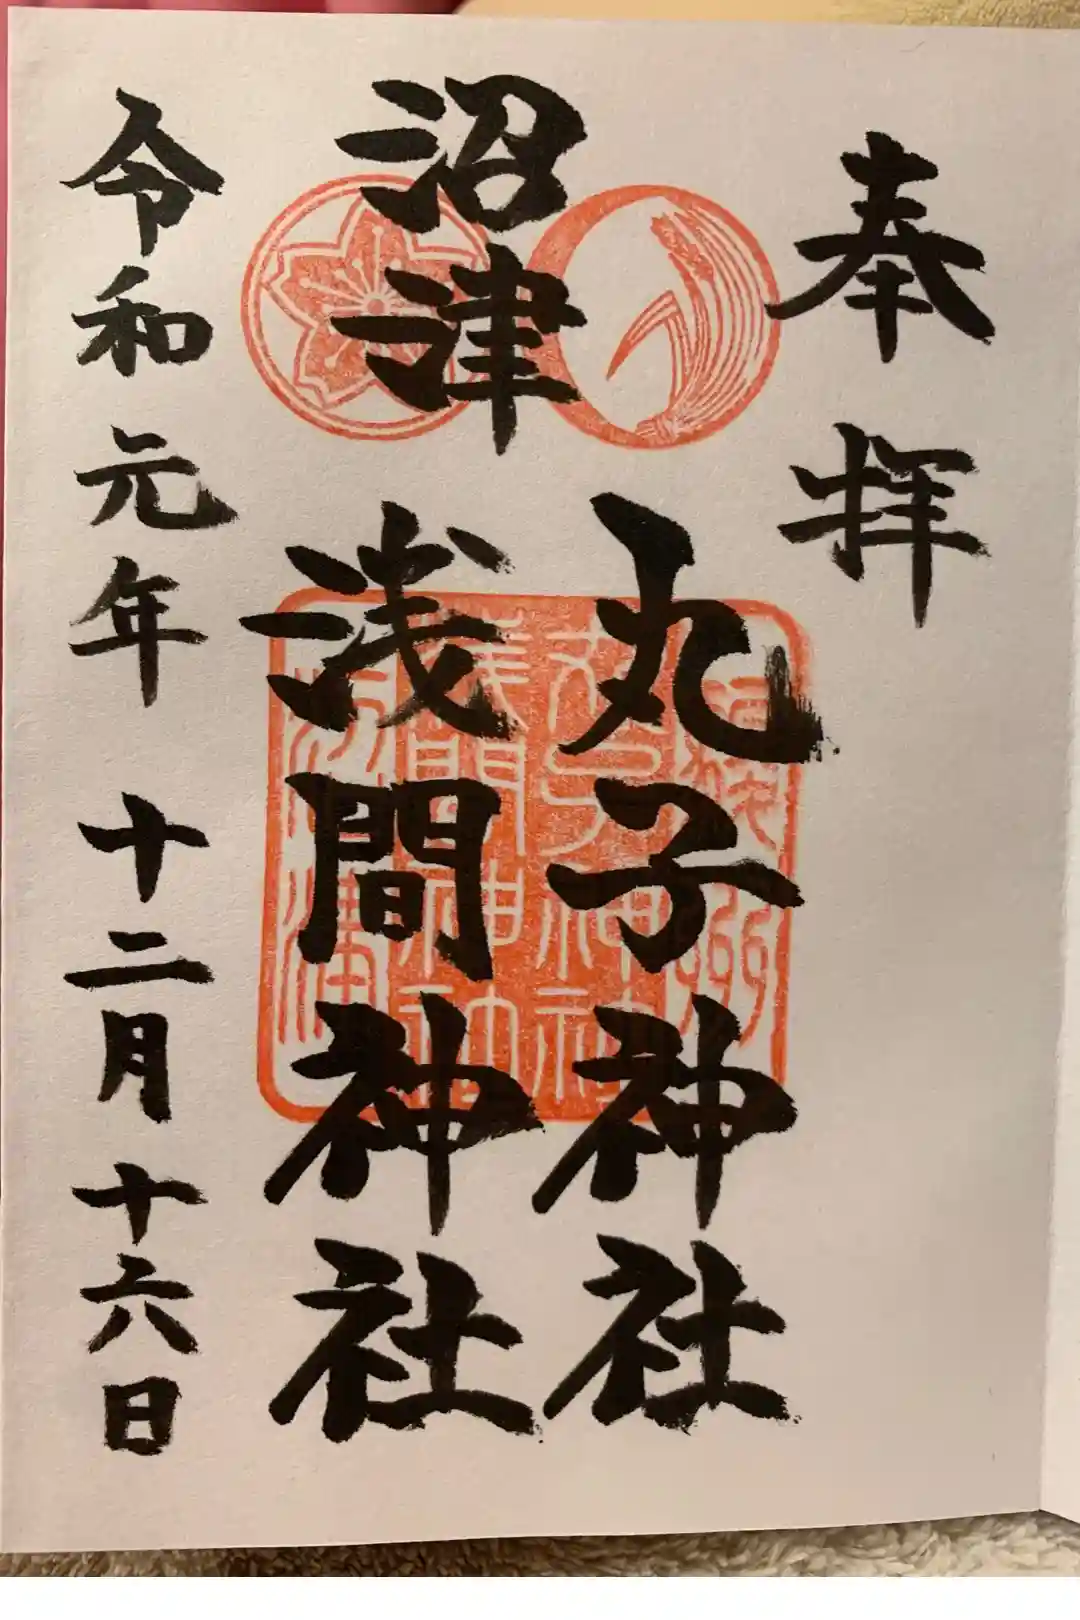 奉拝
沼津
丸子神社
浅間神社
令和元年十二月十六日